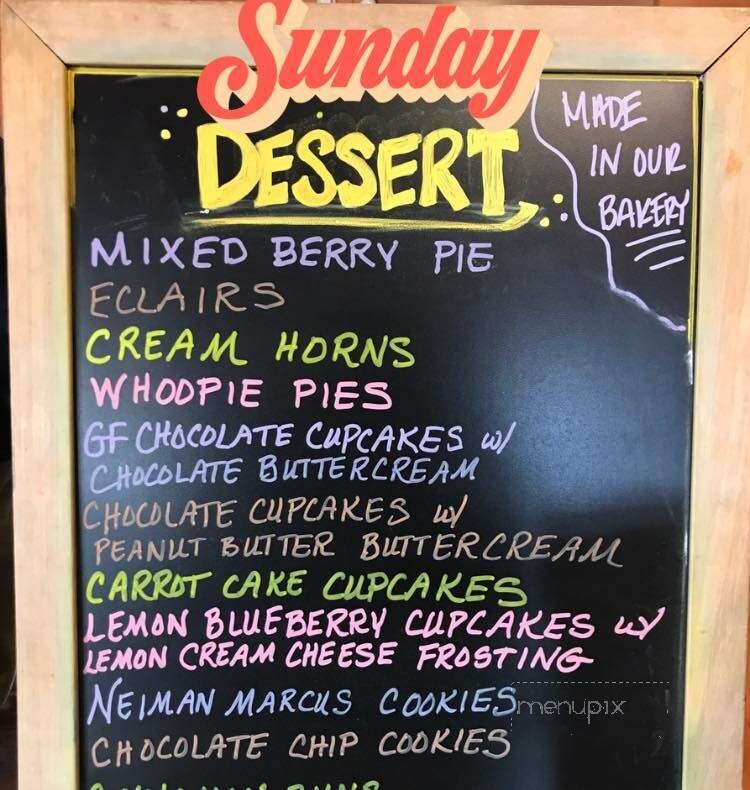 Sunday
DESSERT
MADE
IN OUR
BAKERY
MIXED BERRY PIE
ECLAIRS
CREAM HORNS
WHOOPIE PIES
GF CHOCOLATE CUPCAKES w/
CHOCOLATE BUTTERCREAM
CHOCOLATE CUPCAKES w/
PEANUT BUTTER BUTTERCREAM
CARROT CAKE CUPCAKES
LEMON BLUEBERRY CUPCAKES w/
LEMON CREAM CHEESE FROSTING
NEIMAN MARCUS COOKIES
menupix
CHOCOLATE CHIP COOKIES